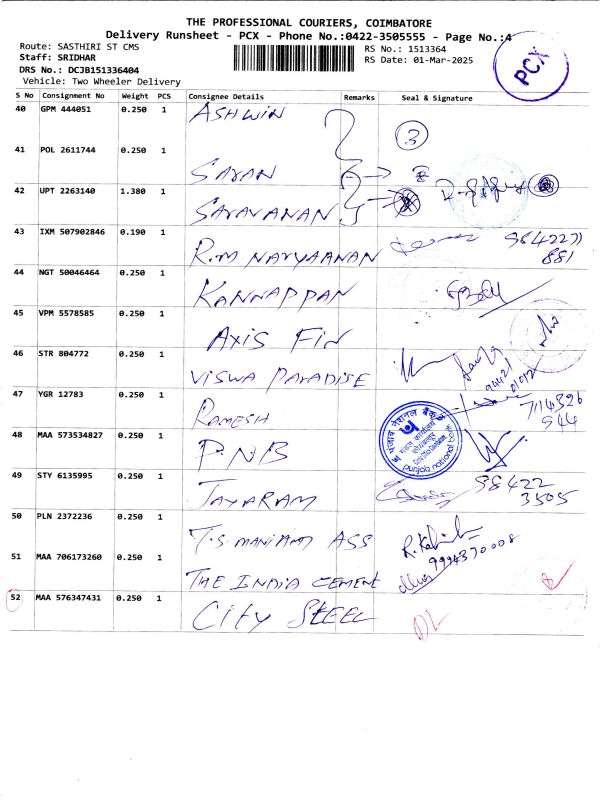 THE PROFESSIONAL COURIERS, COIMBATORE
Delivery Runsheet - PCX - Phone No.:0422-3505555 - Page No.:4
Route: SASTHIRI ST CMS
RS No.: 1513364
Staff: SRIDHAR
RS Date: 01-Mar-2025
DRS No.: DCJB151336404
Vehicle: Two Wheeler Delivery
PCX
S No Consignment No Weight PCS Consignee Details Remarks Seal & Signature
40 GPM 444051 0.250 1 ASHWIN
3
41 POL 2611744 0.250 1 SARAN
42 UPT 2263140 1.380 1 SARAVANAN
43 IXM 507902846 0.190 1 R.M NARYAANAN
881
44 NGT 50046464 0.250 1 KANNAPPAN
45 VPM 5578585 0.250 1 AXIS FIN
46 STR 804772 0.250 1 VISWA PARADISE
47 YGR 12783 0.250 1 RAMESH
544
48 MAA 573534827 0.250 1 PNB
punjab national bank
49 STY 6135995 0.250 1 JAYARAM 98422
3505
50 PLN 2372236 0.250 1 T.S MANIAM ASS
9994370008
51 MAA 706173260 0.250 1 THE INDIA CEMENT
52 MAA 576347431 0.250 1 CITY STEEL
DL